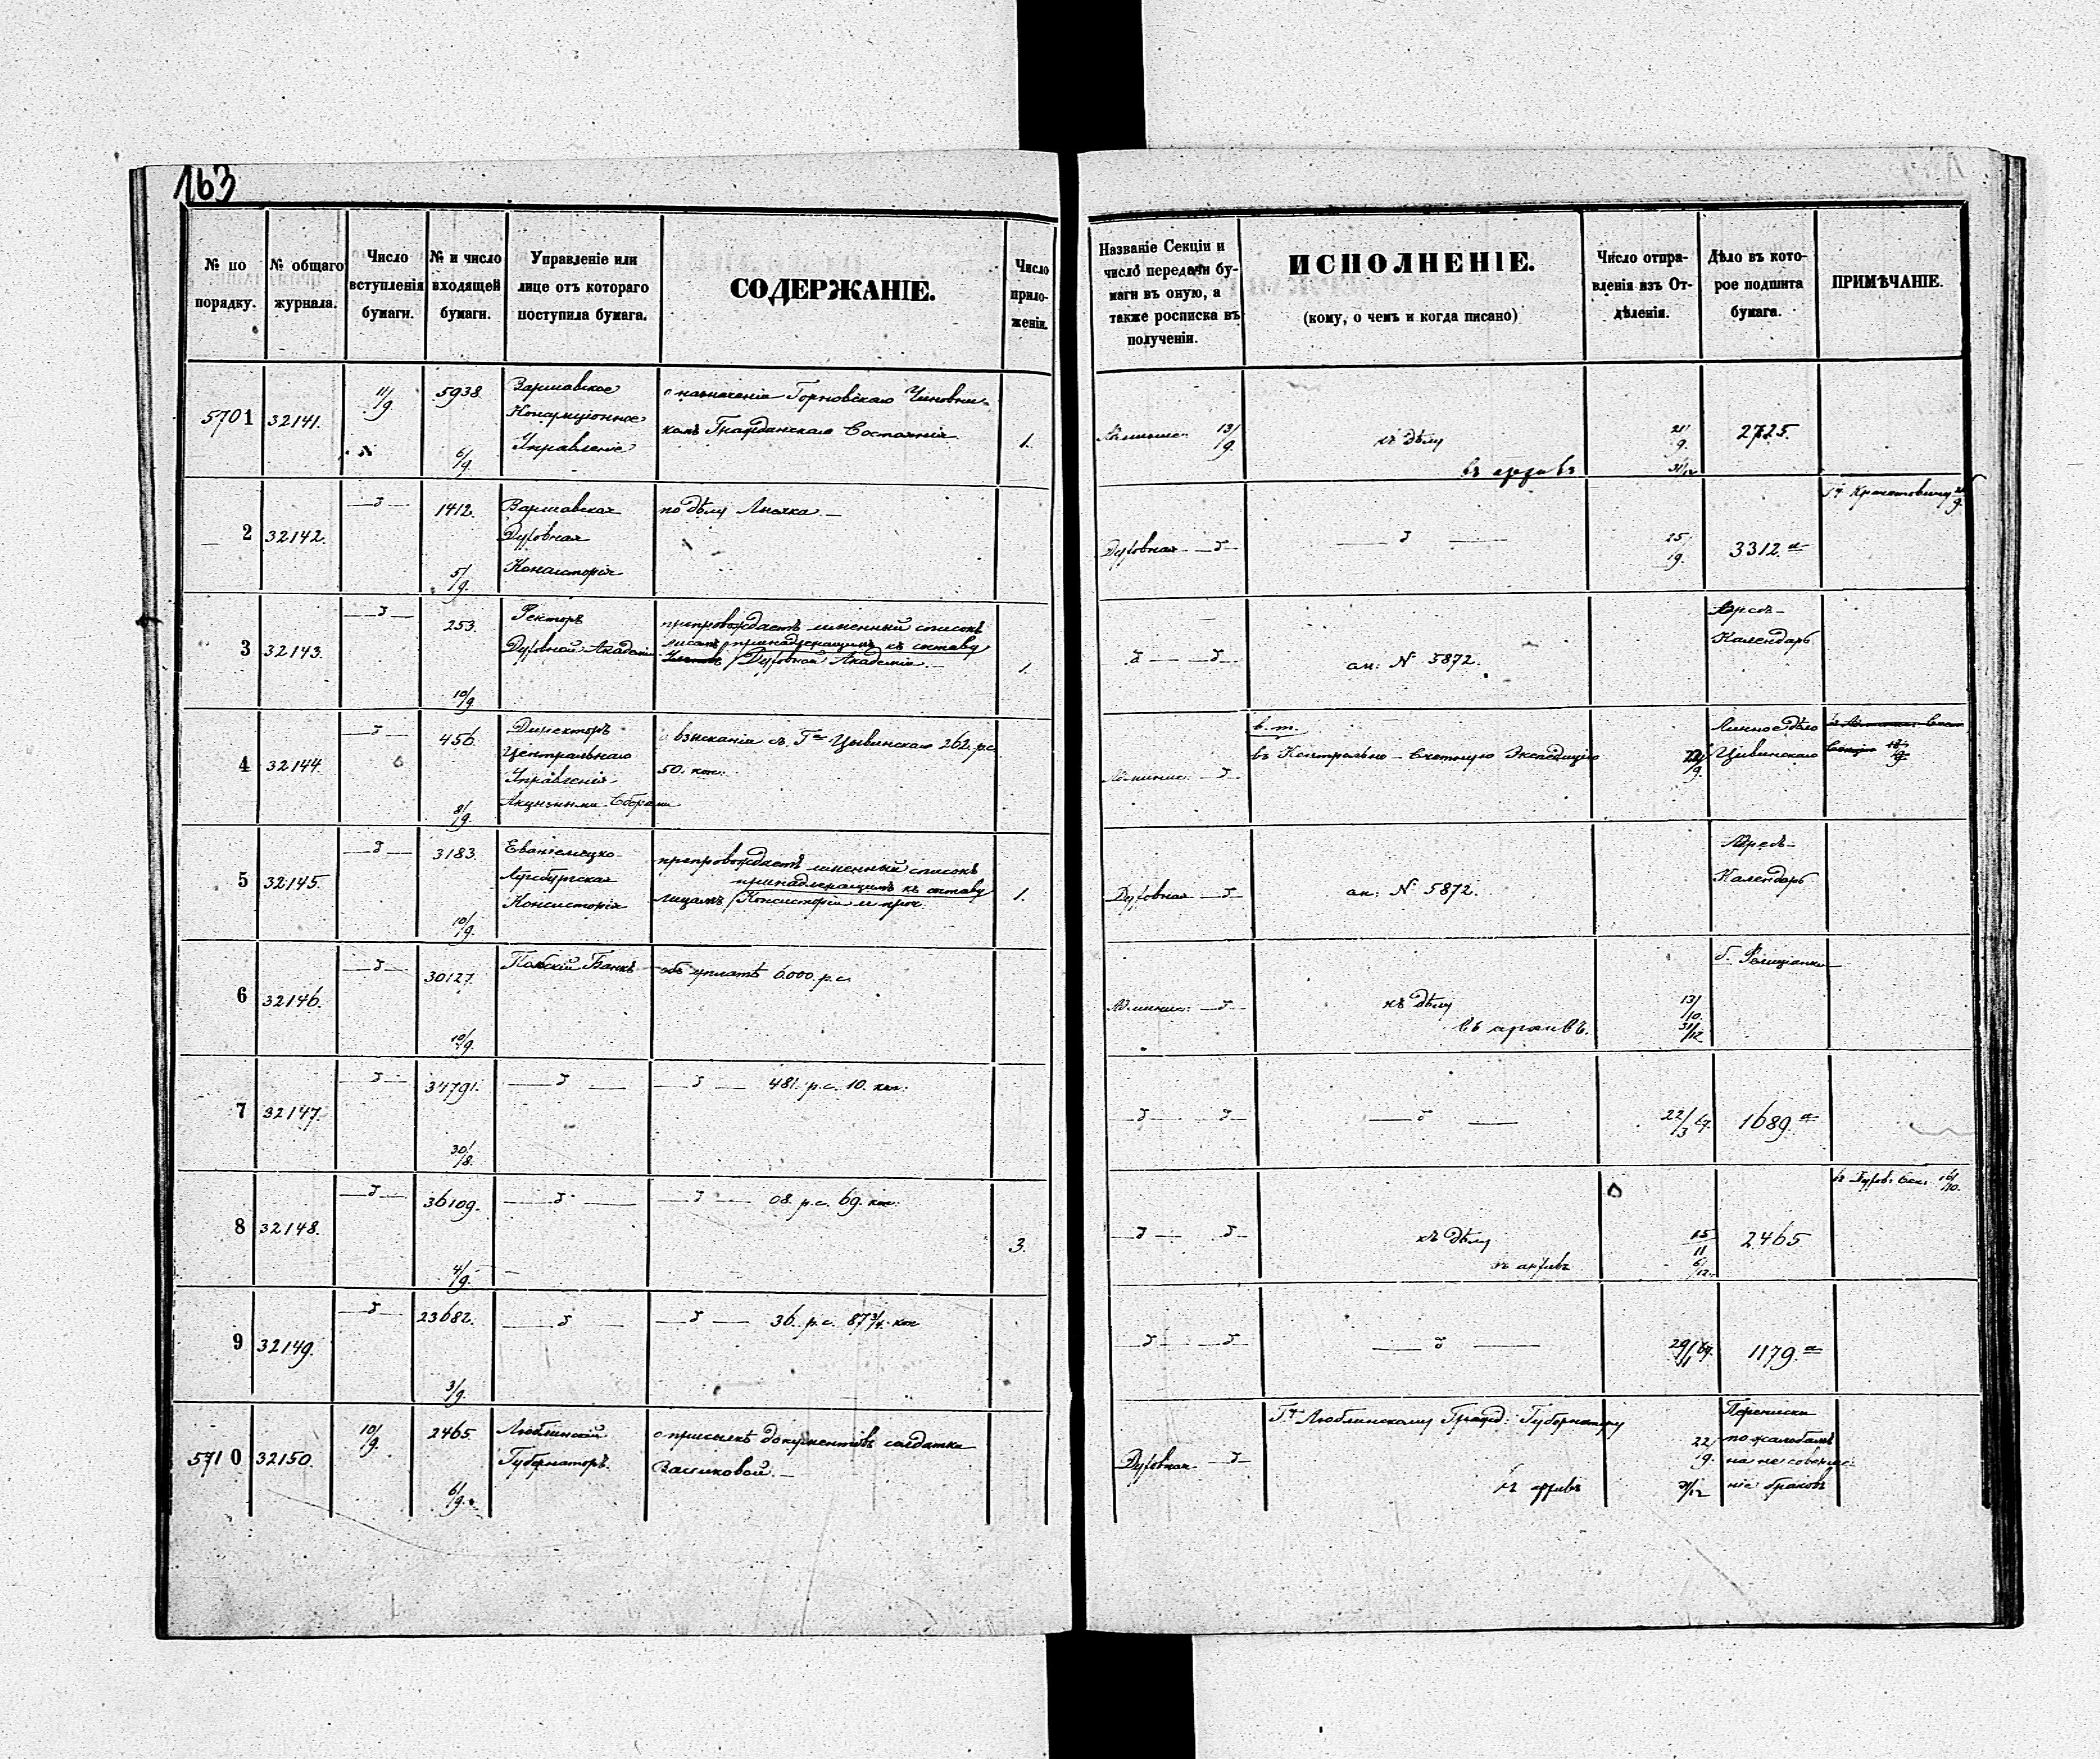 163
№ по порядку.
№ общаго журнала.
Число вступленія бумаги.
№ и число входящей бумаги.
Управленіе или лице отъ котораго поступила бумага.
СОДЕРЖАНІЕ.
Число приложенія.
Названіе Секціи и число передачи бумаги въ оную, а также росписка въ полученіи.
ИСПОЛНЕНІЕ.
(кому, о чемъ и когда писано)
Число отправленія изъ Отдѣленія.
Дѣло въ которое подшита бумага.
ПРИМѢЧАНІЕ.
5701 32141. 11/9. 5938. 6/9.
Варшавское
Управленіе
о назначеніи Горновскаго Чиновни-
комъ Гражданскаго Состоянія
1.
13/9.
къ дѣлу
въ архивъ
21/9. 31/12
2725.
2 32142. 1412. 5/9.
Варшавская
Духовная
Консисторія
по дѣлу
Духовная
25/9.
3312.а
3 32143. 253. 10/9.
Ректоръ
Духовной Академіи
препровождаетъ именный списокъ
принадлежащимъ къ составу
Духовной Академіи.
1.
ан: № 5872.
Адресъ-
Календарь
4 32144. 456. 8/9.
Директоръ
Центральнаго
Управленія
Акцизными Сборами
о взысканіи съ Гна Цывинскаго 262. р.с.
50. коп.
в.т.
въ Контрольно-Счетную Экспедицію
Личное дѣло
Цивинскаго
5 32145. 3183. 10/9.
Евангелицко-
Аугсбургская
Консисторія
препровождаетъ именный списокъ
принадлежащимъ къ составу
лицамъ Консисторіи и проч.
1.
Духовная
ан: № 5872.
Адресъ-
Календарь
6 32146. 30127. 10/9.
Польскій Банкъ
объ уплатѣ 6.000. р.с.
къ дѣлу
въ архивъ.
13/10. 31/12
7 32147. 34791. 30/8.
481. р.с. 10. коп.
22/3 67.
1689.а
8 32148. 36109. 4/9.
08. р.с. 69. коп.
3.
къ дѣлу
въ архивъ
15/11 6/12.
2465
въ Духов: Сек: 16/10.
9 32149. 23682. 3/9.
36. р.с. 87 3/4. коп
1179.а
5710 32150. 10/9. 2465. 6/9.
Люблинскій
Губернаторъ.
о присылкѣ документовъ солдатки
Васиковой.
Духовная
Гу Люблинскому Гражд: Губернатору
въ архивъ
22/9. 31/12
Переписка
по жалобамъ
на не соверше-
ніе браковъ